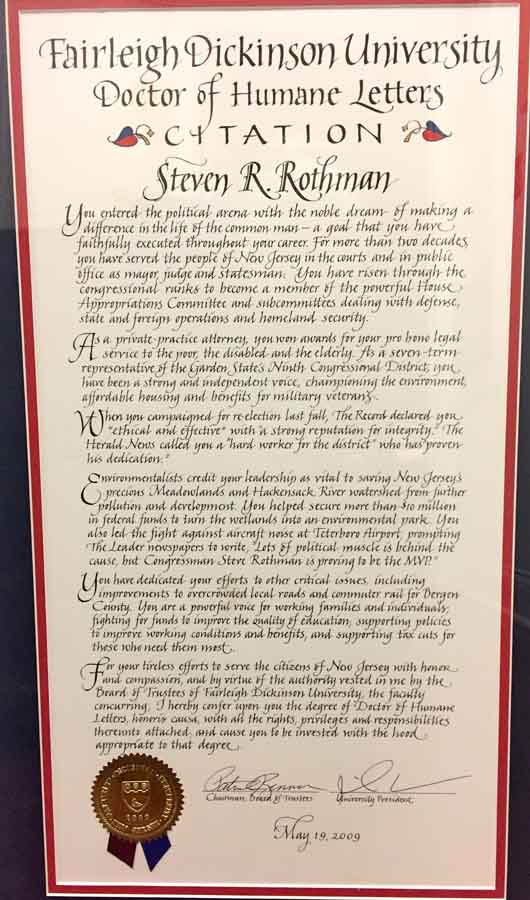 Fairleigh Dickinson University
Doctor of Humane Letters
CITATION
Steven R. Rothman
You entered the political arena with the noble dream of making a
difference in the life of the common man – a goal that you have
faithfully executed throughout your career. For more than two decades,
you have served the people of New Jersey in the courts and in public
office as mayor, judge and statesman. You have risen through the
congressional ranks to become a member of the powerful House
Appropriations Committee and subcommittees dealing with defense,
state and foreign operations and homeland security.
As a private-practice attorney, you won awards for your pro bono legal
service to the poor, the disabled and the elderly. As a seven-term
representative of the Garden State's Ninth Congressional District, you
have been a strong and independent voice, championing the environment,
affordable housing and benefits for military veterans.
When you campaigned for re-election last fall, The Record declared you
"ethical and effective" with "a strong reputation for integrity." The
Herald News called you a "hard worker for the district" who "has proven
his dedication."
Environmentalists credit your leadership as vital to saving New Jersey's
precious Meadowlands and Hackensack River watershed from further
pollution and development. You helped secure more than $10 million
in federal funds to turn the wetlands into an environmental park. You
also led the fight against aircraft noise at Teterboro Airport, prompting
The Leader newspapers to write, "Lots of political muscle is behind the
cause, but Congressman Steve Rothman is proving to be the MVP."
You have dedicated your efforts to other critical issues, including
improvements to overcrowded local roads and commuter rail for Bergen
County. You are a powerful voice for working families and individuals,
fighting for funds to improve the quality of education, supporting policies
to improve working conditions and benefits, and supporting tax cuts for
those who need them most.
For your tireless efforts to serve the citizens of New Jersey with honor
and compassion, and by virtue of the authority vested in me by the
Board of Trustees of Fairleigh Dickinson University, the faculty
concurring, I hereby confer upon you the degree of Doctor of Humane
Letters, honoris causa, with all the rights, privileges and responsibilities
thereunto attached, and cause you to be invested with the hood
appropriate to that degree.
Chairman, Board of Trustees
University President
May 19, 2009